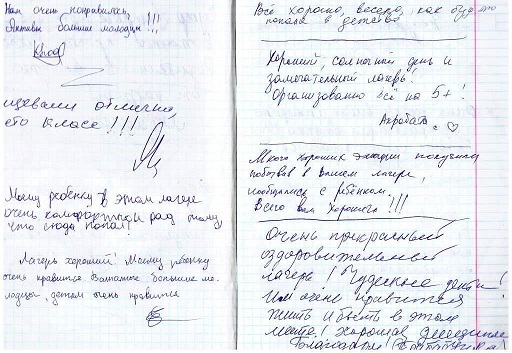 Нам очень понравилось,
Активы большие молодцы!!!
щевали отлично,
это класс!!!
Моему ребенку в этом лагере
очень комфортно и рад тому
что сюда попал!
Лагерь хороший! Моему ребёнку
очень нравится. Вожатые большие мо-
лодцы, детям очень нравится
Всё хорошо, весело, как будто
попала в детство
Хороший, солнечный день и
замечательный лагерь!
Организованно всё на 5+!
Много хороших эмоций получили
побывав в Вашем лагере,
пообщались с ребёнком.
Всего вам хорошего!!!
Очень прекрасный
оздоровительный
лагерь! Чудесные дети!
Им очень нравится
жить и быть в этом
месте! Хорошая